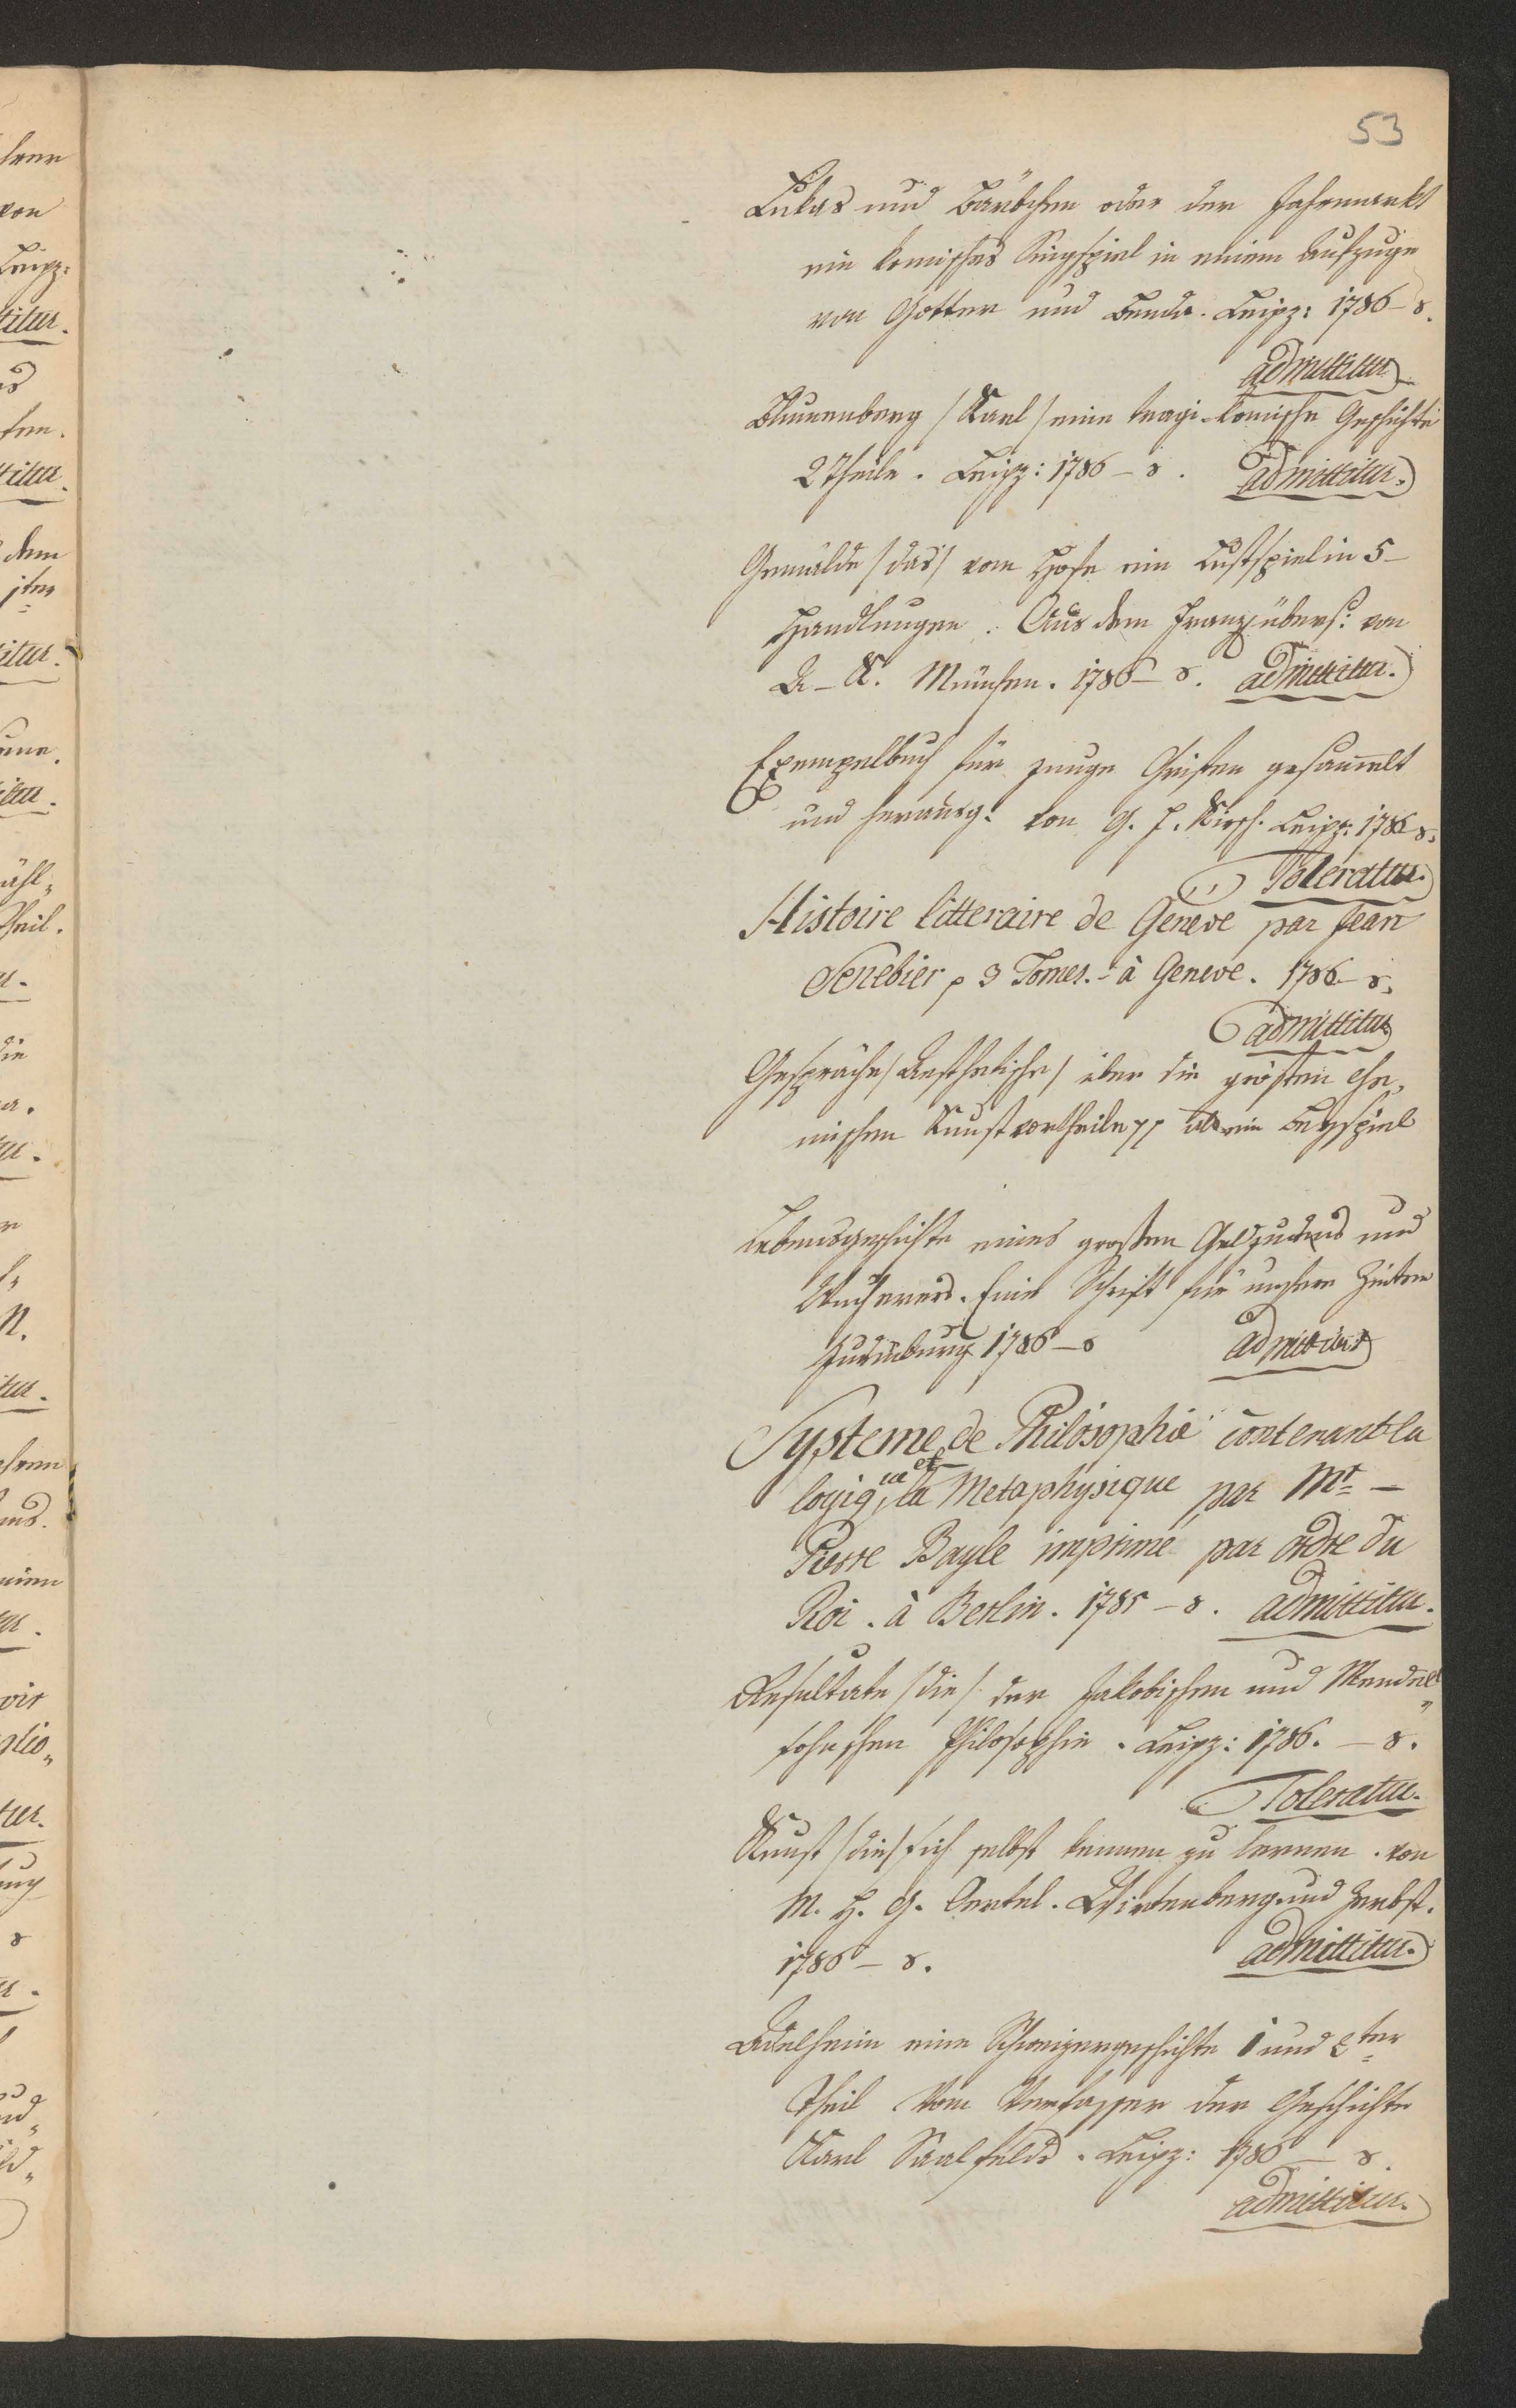 53
Lukas und Bärbchen oder der Jahrmarkt
ein komisches Singspiel in einem Aufzuge
von Gotter und Benda. Leipz: 1786 – 8.
admittitur
Blumenberg /Karl/ eine tragi-komische Geschichte
2 Theile. Leipz: 1786 – 8. admittitur.
Gemälde /das/ vom Hofe ein Lustspiel in 5 –
Handlungen. Aus dem Franz: übers: von
A – K. München. 1786 – 8. admittitur.
Exempelbuch für junge Christen gesammelt
und herausg: von G. J. Kirsch. Leipz: 1786 8.
Toleratur.
Histoire litteraire de Geneve par Jean
Senebier p 3 Tomes. – à Geneve. 1786 – 8.
admittitur
Gespräche /Aesthetische/ über die grösten
Kunstvortheile pp als ein Beyspiel
Lebensgeschichte eines grossen Geldjudens und
Wucherers. Eine Schrift für unsere Zeiten
1786 – 8 admittitur
Systeme de Philosophie contenant la
logique et la Metaphysique par Mr –
Pierre Bayle imprimé par ordre du
Roi. à Berlin. 1785 – 8. admittitur.
Resultate /die/ der Jakobischen und Mendel„
sohnschen Philosophie. Leipz: 1786. – 8.
Toleratur.
Kunst /die/ sich selbst kennen zu lernen. von
M. H. G. Oertel. Wittenberg und Zerbst.
1786 – 8. admittitur.
Adelheim eine Schweizergeschichte 1 und 2ter
Theil Vom Verfasser der Geschichte
Karl Saalfelds. Leipz: 1786 – 8.
admittitur.